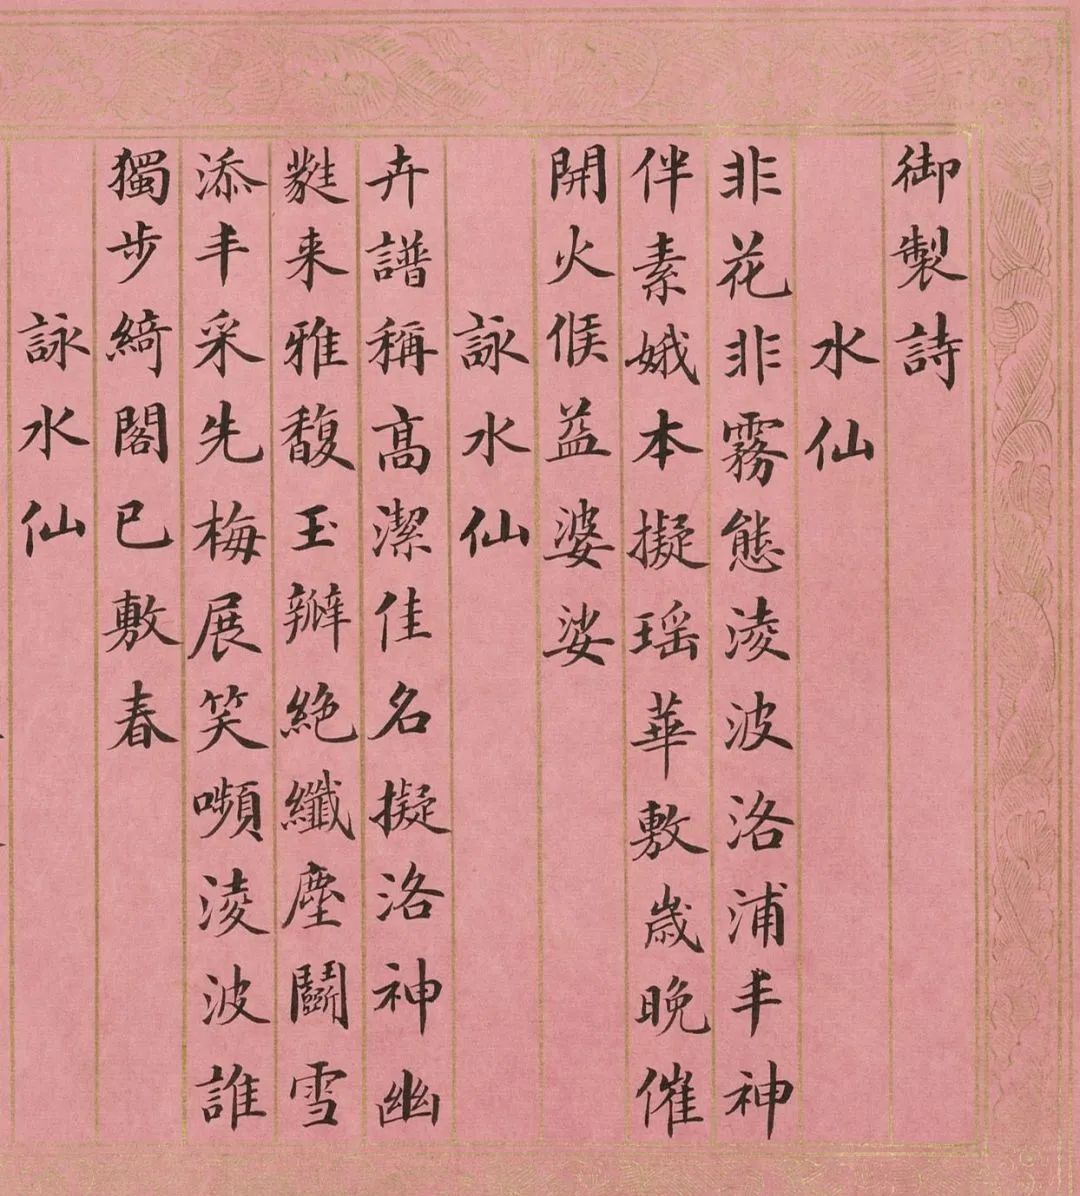 御製詩
水仙
非花非霧態淩波洛浦丰神
伴素娥本擬瑶華敷歲晚催
開火候益婆娑
詠水仙
卉譜稱髙潔佳名擬洛神幽
蕤来雅馥玉瓣絶纖塵鬬雪
添丰采先梅展笑嚬淩波誰
獨步綺閣已敷春
詠水仙